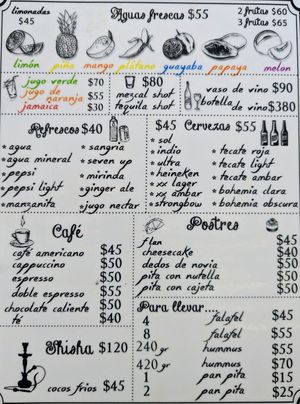 limonadas
$45
Aguas frescas $55
2 frutas $60
3 frutas $65
limón piña mango plátano guayaba papaya melon
jugo verde $70
jugo de naranja $55
jamaica $30
$80
mezcal shot
tequila shot
vaso de vino $90
botella de vino $380
Refrescos $40
* agua
* agua mineral
* pepsi
* pepsi light
* manzanita
* sangria
* seven up
* mirinda
* ginger ale
* jugo nectar
$45 Cervezas $55
* sol
* indio
* ultra
* heineken
* xx lager
* xx ambar
* strongbow
* tecate roja
* tecate light
* tecate ambar
* bohemia clara
* bohemia obscura
Café
café americano $45
cappuccino $50
espresso $50
doble espresso $55
chocolate caliente $50
té $40
Postres
flan $45
cheesecake $40
dedos de novia $50
pita con nutella $50
pita con cajeta $50
Shisha $120
cocos frios $45
Para llevar...
4 falafel $45
8 falafel $55
240 gr hummus $55
420 gr hummus $70
1 pan pita $15
2 pan pita $25